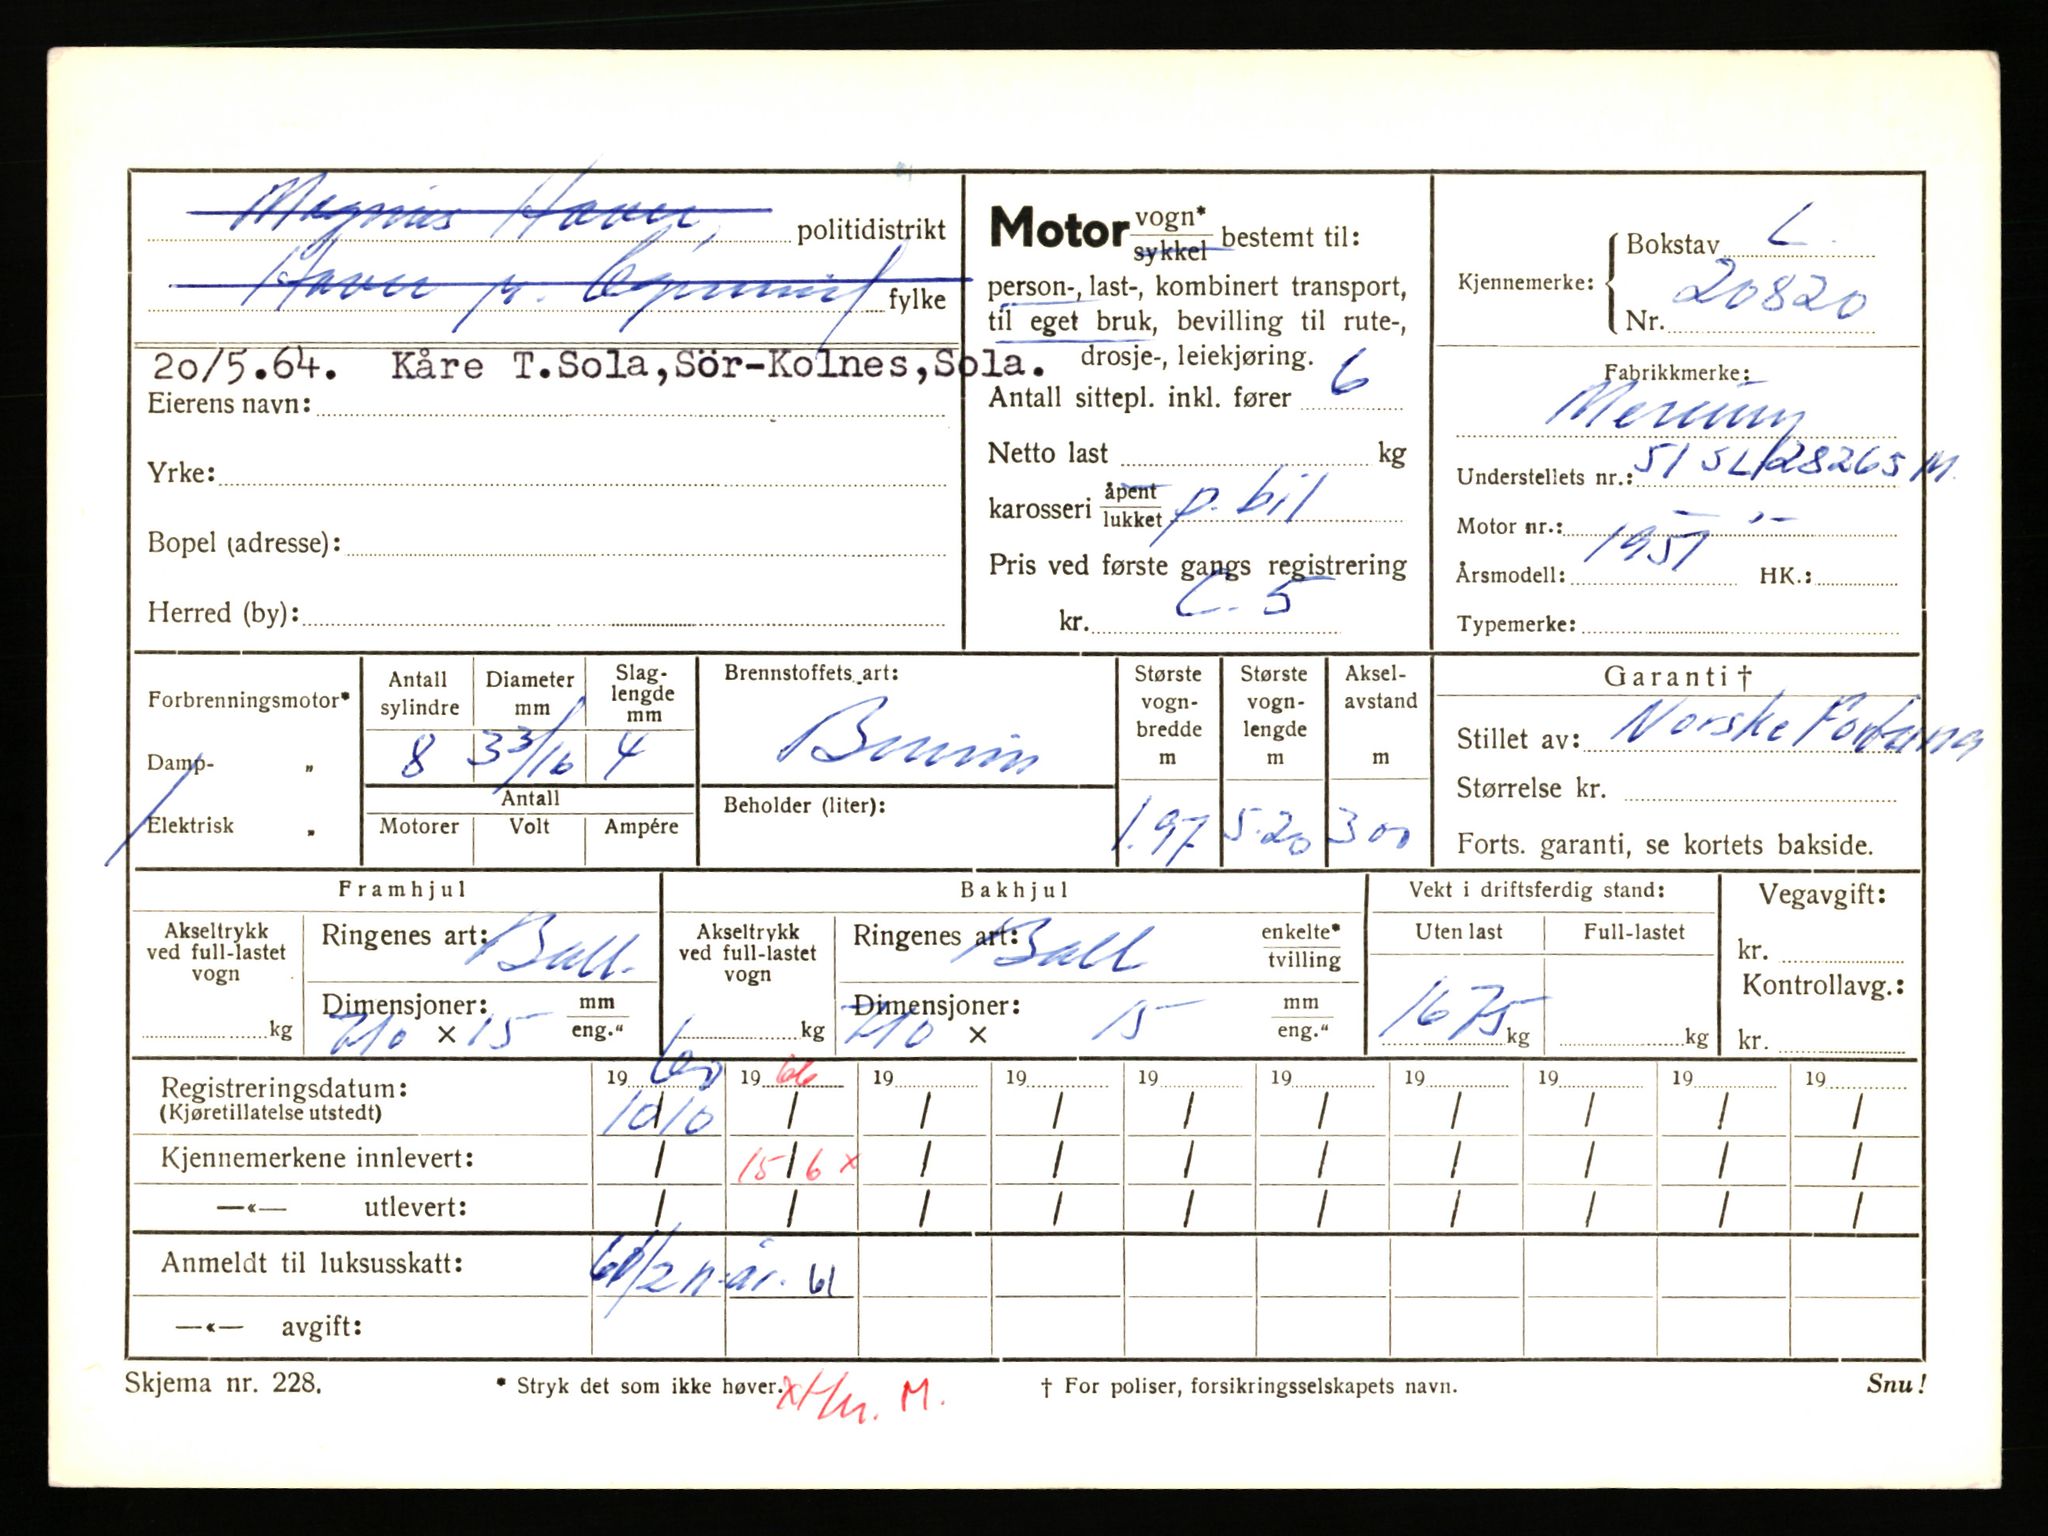 Magnus Haver, politidistrikt
Haver p. fylke
20/5.64. Kåre T.Sola,Sör-Kolnes,Sola.
Eierens navn:
Yrke:
Bopel (adresse):
Herred (by):
Motor vogn* sykkel bestemt til:
person-, last-, kombinert transport,
til eget bruk, bevilling til rute-,
drosje-, leiekjøring.
Antall sittepl. inkl. fører 6
Netto last kg
karosseri åpent lukket p. bil
Pris ved første gangs registrering
kr. C. 5
Kjennemerke: Bokstav L.
Nr. 20820
Fabrikkmerke:
Mercury
Understellets nr.: 51 SL 28265 M.
Motor nr.: — „ —
Årsmodell: 1951 HK.:
Typemerke:
Forbrenningsmotor*
Damp- „
Elektrisk „
Antall sylindre Diameter mm Slag-lengde mm
8 3 3/16 4
Antall
Motorer Volt Ampére
Brennstoffets art:
Bensin
Beholder (liter):
Største vogn-bredde m Største vogn-lengde m Aksel-avstand m
1.97 5.20 300
Garanti †
Stillet av: Norske Fortuna
Størrelse kr.
Forts. garanti, se kortets bakside.
Framhjul
Akseltrykk ved full-lastet vogn kg
Ringenes art: Ball.
Dimensjoner: 710 × 15 mm eng."
Bakhjul
Akseltrykk ved full-lastet vogn kg
Ringenes art: Ball enkelte* tvilling
Dimensjoner: 710 × 15 mm eng."
Vekt i driftsferdig stand:
Uten last Full-lastet
1675 kg kg
Vegavgift:
kr.
Kontrollavg.:
kr.
Registreringsdatum: 19 60 19 66 19 19 19 19 19 19 19 19
(Kjøretillatelse utstedt) 10/10 / / / / / / / / /
Kjennemerkene innlevert: / 15/6 x / / / / / / / /
—«— utlevert: / / / / / / / / / /
Anmeldt til luksusskatt: 60 1/2 n.år. 61
—«— avgift:
Skjema nr. 228. * Stryk det som ikke høver. † For poliser, forsikringsselskapets navn. Snu!